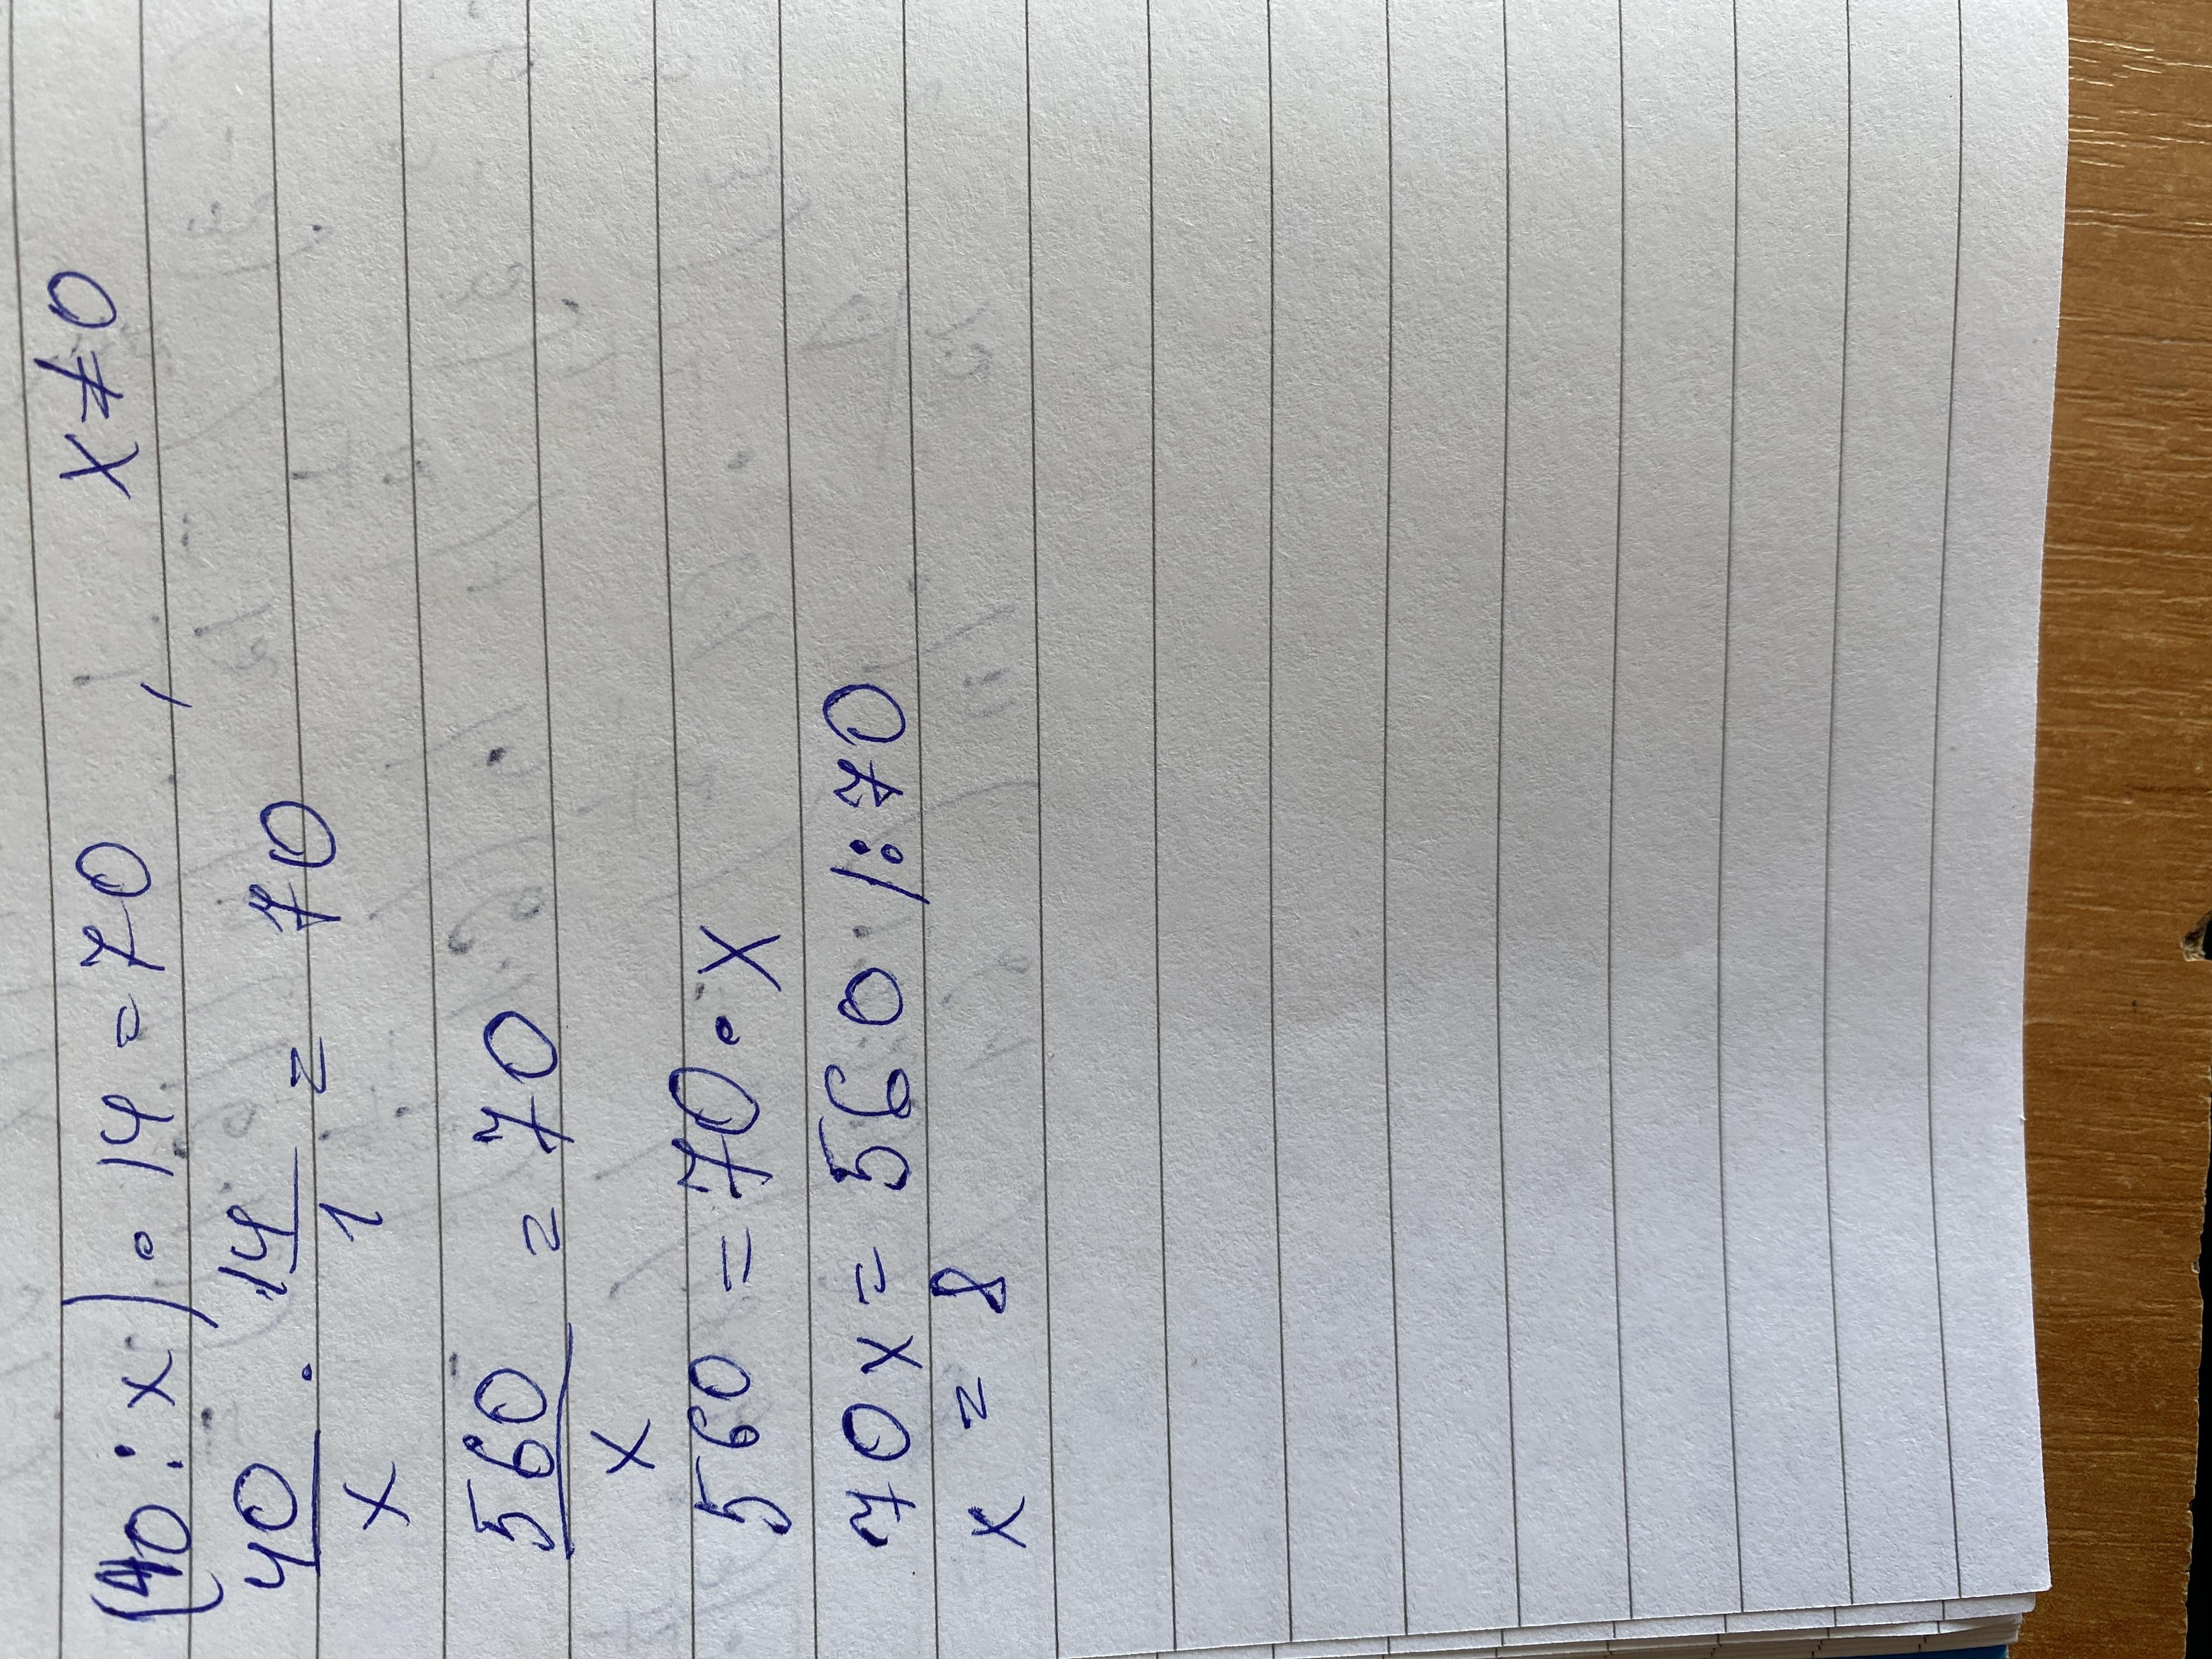 (40:x)·14=70, x≠0
40/x · 14/1 = 70
560/x = 70
560 = 70·x
70x = 560 /:70
x = 8